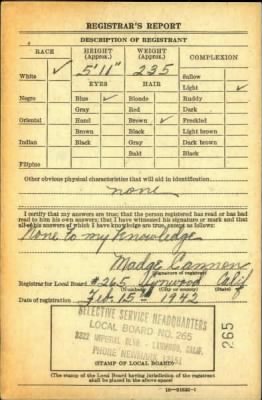 REGISTRAR'S REPORT
DESCRIPTION OF REGISTRANT
RACE HEIGHT (Approx.) WEIGHT (Approx.) COMPLEXION
White ✓ 5' 11" 235 Sallow
EYES HAIR Light ✓
Negro Blue ✓ Blonde Ruddy
Gray Red Dark
Oriental Hazel Brown ✓ Freckled
Brown Black Light brown
Indian Black Gray Dark brown
Bald Black
Filipino
Other obvious physical characteristics that will aid in identification
none
I certify that my answers are true; that the person registered has read or has had
read to him his own answers; that I have witnessed his signature or mark and that
all of his answers of which I have knowledge are true, except as follows:
None to my knowledge
Madge Cannon
(Signature of registrar)
Registrar for Local Board #265 Lynwood Calif
(Number) (City or county) (State)
Date of registration Feb 15th 1942
SELECTIVE SERVICE HEADQUARTERS
LOCAL BOARD NO. 265
IMPERIAL BLVD. - LYNWOOD, CALIF.
PHONE
265
(STAMP OF LOCAL BOARD)
(The stamp of the Local Board having jurisdiction of the registrant
shall be placed in the above space)